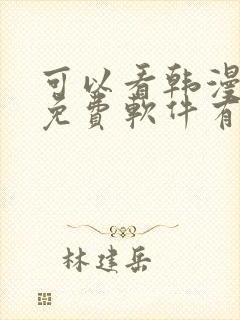 可以看韩漫
免費軟件有
林建岳